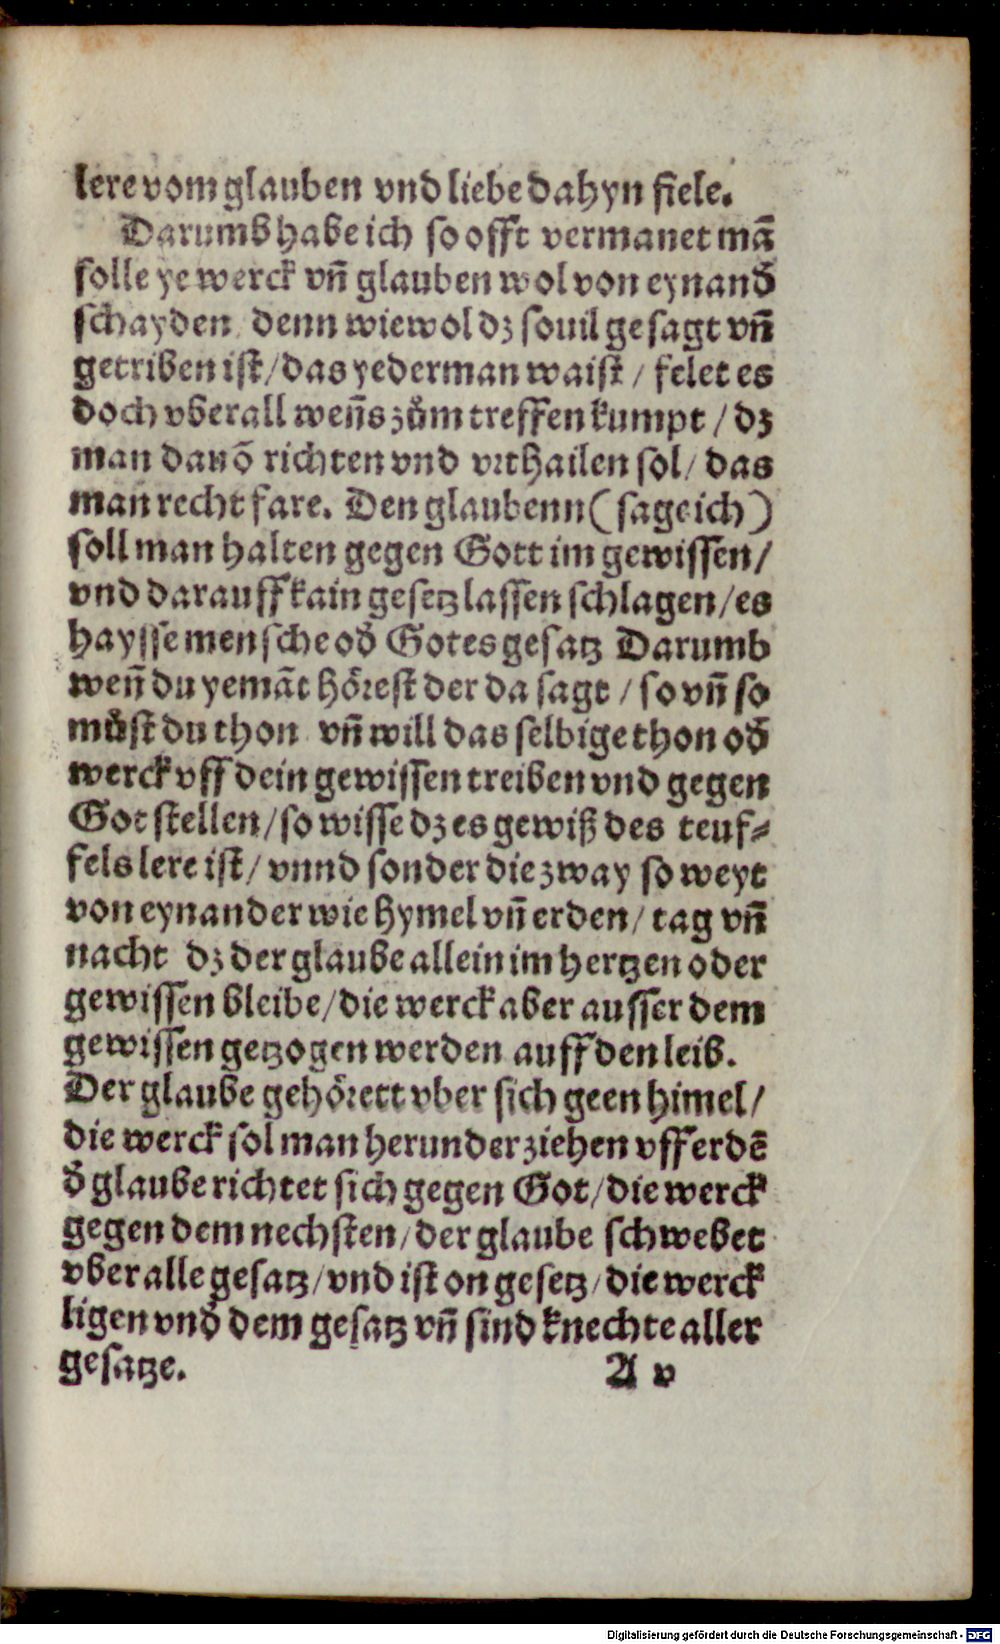 lere vom glauben vnd liebe dahyn fiele.
Darumb habe ich so offt vermanet mā
solle ye werck vñ glauben wol von eynand̕
schayden denn wiewol dz souil gesagt vñ
getriben ist / das yederman waist / felet es
doch vberall weñs zům treffen kumpt / dz
man dauō richten vnd vrthailen sol / das
man recht fare. Den glaubenn (sage ich)
soll man halten gegen Gott im gewissen /
vnd darauff kain gesetz lassen schlagen / es
haysse mensche od̕ Gotes gesatz Darumb
weñ du yemāt hőrest der da sagt / so vñ so
můst du thon vñ will das selbige thon od̕
werck vff dein gewissen treiben vnd gegen
Got stellen / so wisse dz es gewiß des teuf⸗
fels lere ist / vnnd sonder die zway so weyt
von eynander wie hymel vñ erden / tag vñ
nacht dz der glaube allein im hertzen oder
gewissen bleibe / die werck aber ausser dem
gewissen getzogen werden auff den leib.
Der glaube gehőrett vber sich geen himel /
die werck sol man herunder ziehen vff erdē
d̕ glaube richtet sich gegen Got / die werck
gegen dem nechsten / der glaube schwebet
vber alle gesatz / vnd ist on gesetz / die werck
ligen vnd̕ dem gesatz vñ sind knechte aller
gesatze. A v
Digitalisierung gefördert durch die Deutsche Forschungsgemeinschaft - DFG